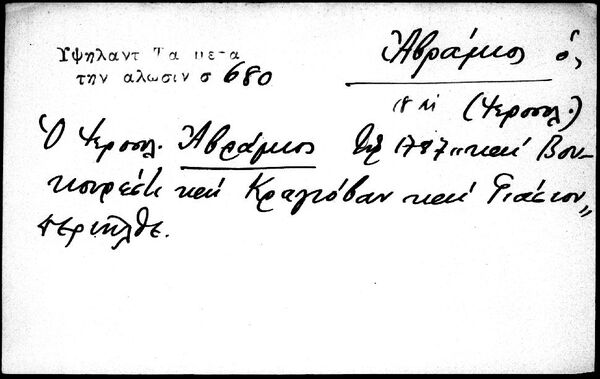 Ὑψηλαντ Τα μετα
την αλωσιν σ 680
Ἀβράμιος ὁ,
18 (Ἱεροσολ.)
Ὁ Ἱεροσολ. Ἀβράμιος τῷ 1787 " καὶ Βου-
κουρέστι καὶ Κραγιόβαν καὶ Γιάσιον "
περιῆλθε.